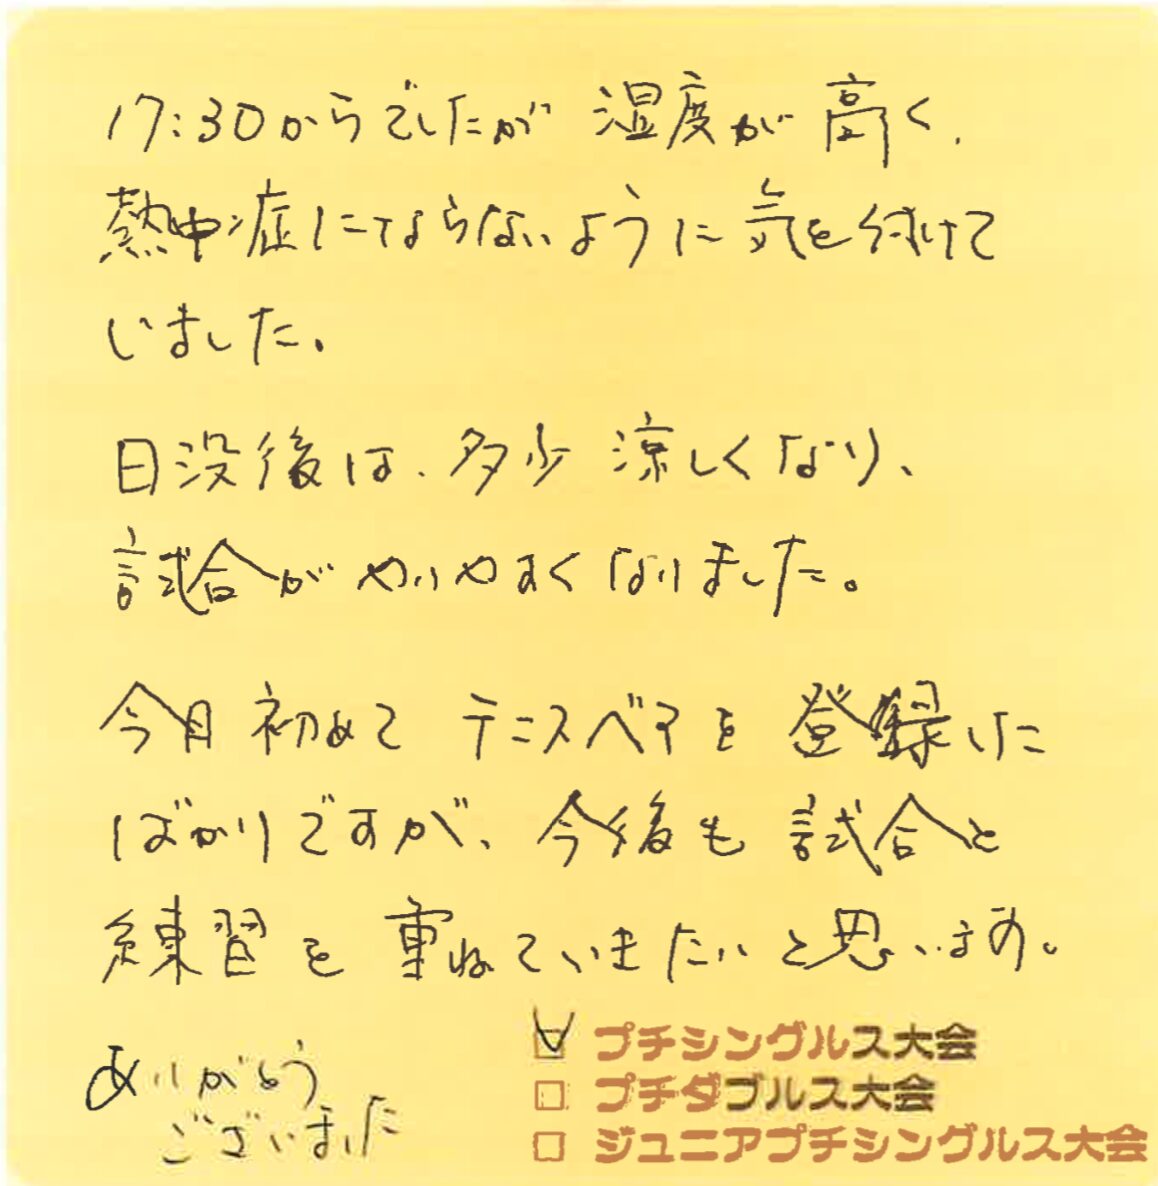 17:30からでしたが 湿度が高く、
熱中症にならないように気を付けて
いました。
日没後は、多少涼しくなり、
試合がやりやすくなりました。
今月初めて テニスベアを登録した
ばかりですが、今後も試合と
練習を重ねていきたいと思います。
ありがとう
ございました
☑ プチシングルス大会
□ プチダブルス大会
□ ジュニアプチシングルス大会